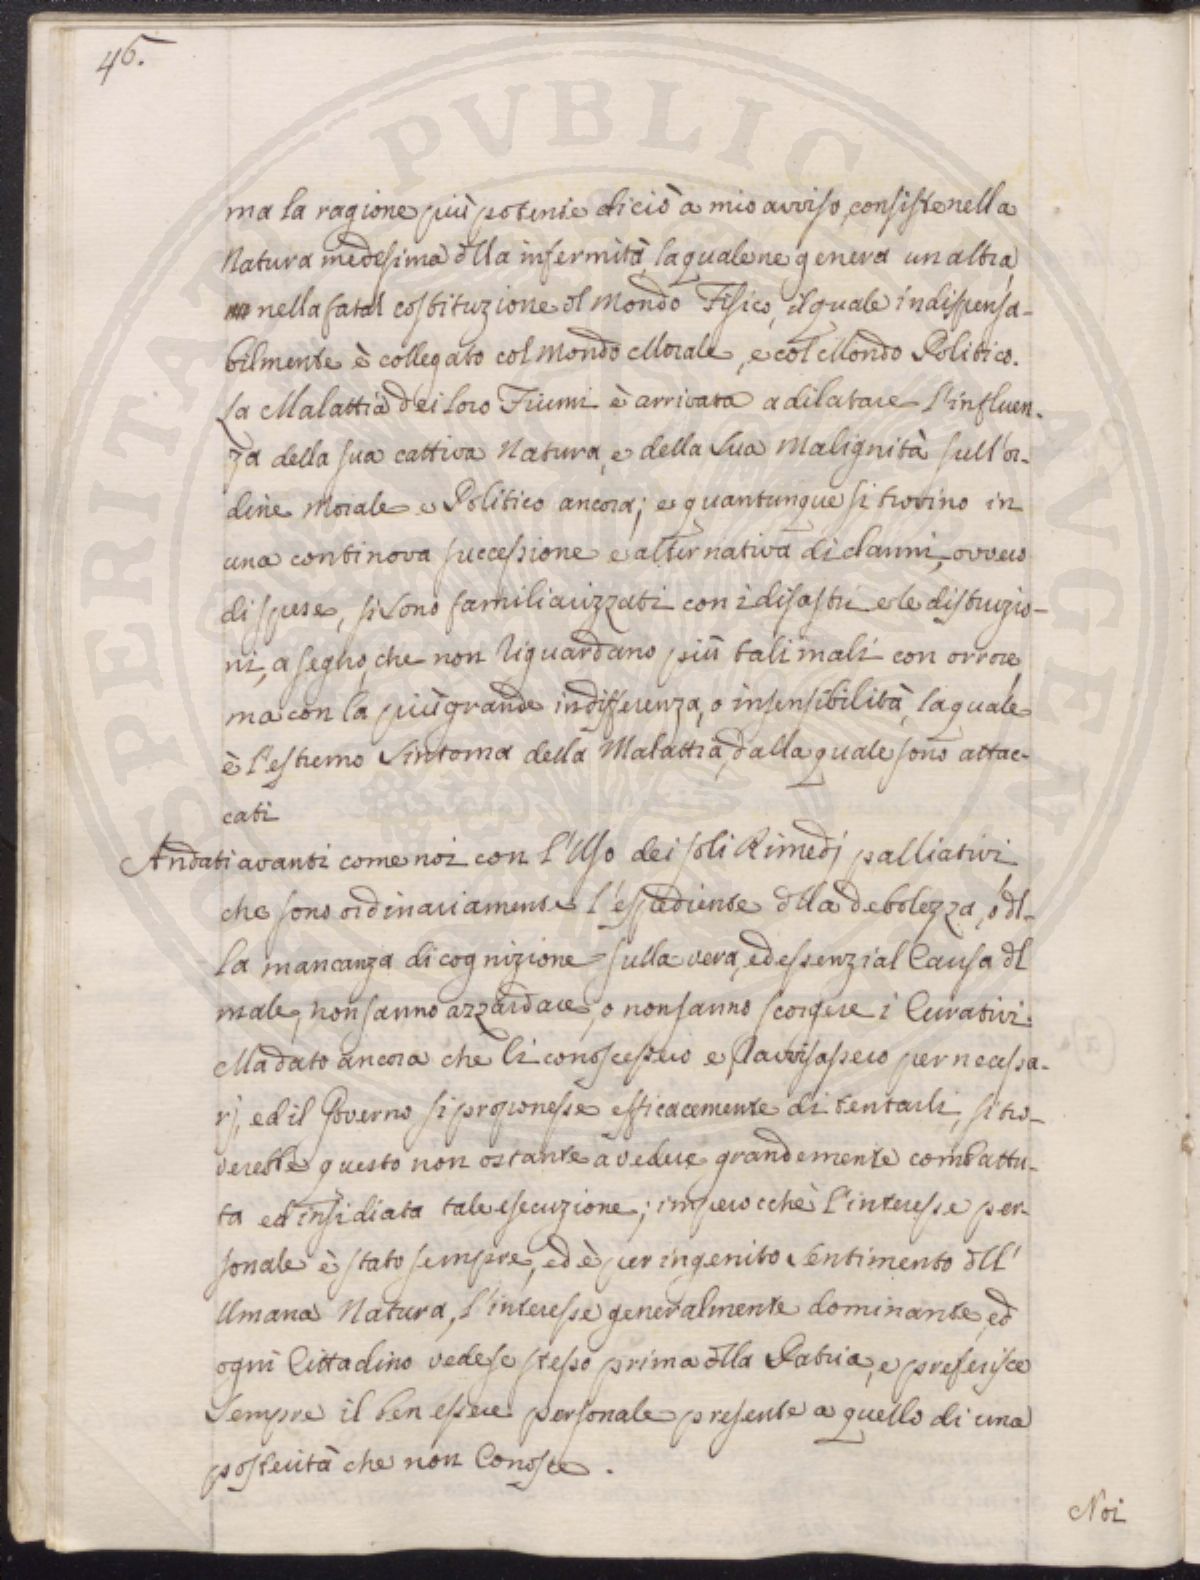 46.
ma la ragione più potente di ciò a mio avviso, consiste nella
Natura medesima dlla infermità, la quale ne genera un altra
nella fatal costituzione dl Mondo Fisico, il quale indispensa-
bilmente è collegato col Mondo Morale, e col Mondo Politico.
La Malattia dei loro Fiumi è arrivata a dilatare l'influen-
za della sua cattiva Natura, e della sua Malignità sull'or-
dine Morale e Politico ancora; e quantunque si trovino in
una continova successione e alternativa di danni, ovvero
di spese, si sono familiarizzati con i disastri e le distruzio-
ni, a segno, che non riguardano più tali mali con orrore,
ma con la più grande indifferenza, o insensibilità, la quale
è l'estremo Sintoma della Malattia, dalla quale sono attac-
cati
Andati avanti come noi con l'Uso dei soli Rimedj palliativi,
che sono ordinariamente l'espediente dlla debolezza, o dl-
la mancanza di cognizione sulla vera, ed essenzial Causa dl
male, non sanno azzardare, o non sanno scorgere i Curativi.
Ma dato ancora che li conoscessero e Ravvisassero per necessa-
rj, ed il Governo si proponesse efficacemente di tentarli, si tro-
verebbe questo non ostante a vedere grandemente combattu-
ta ed insidiata tale esecuzione; imperocchè l'interesse per-
sonale è stato sempre, ed è per ingenito Sentimento dll'
Umana Natura, l'interesse generalmente dominante, ed
ogni Cittadino vede se stesso prima dlla Patria, e preferisce
Sempre il ben essere personale presente a quello di una
posterità che non Conosce.
Noi
PVBLIC
AVGEN
SPERITAT